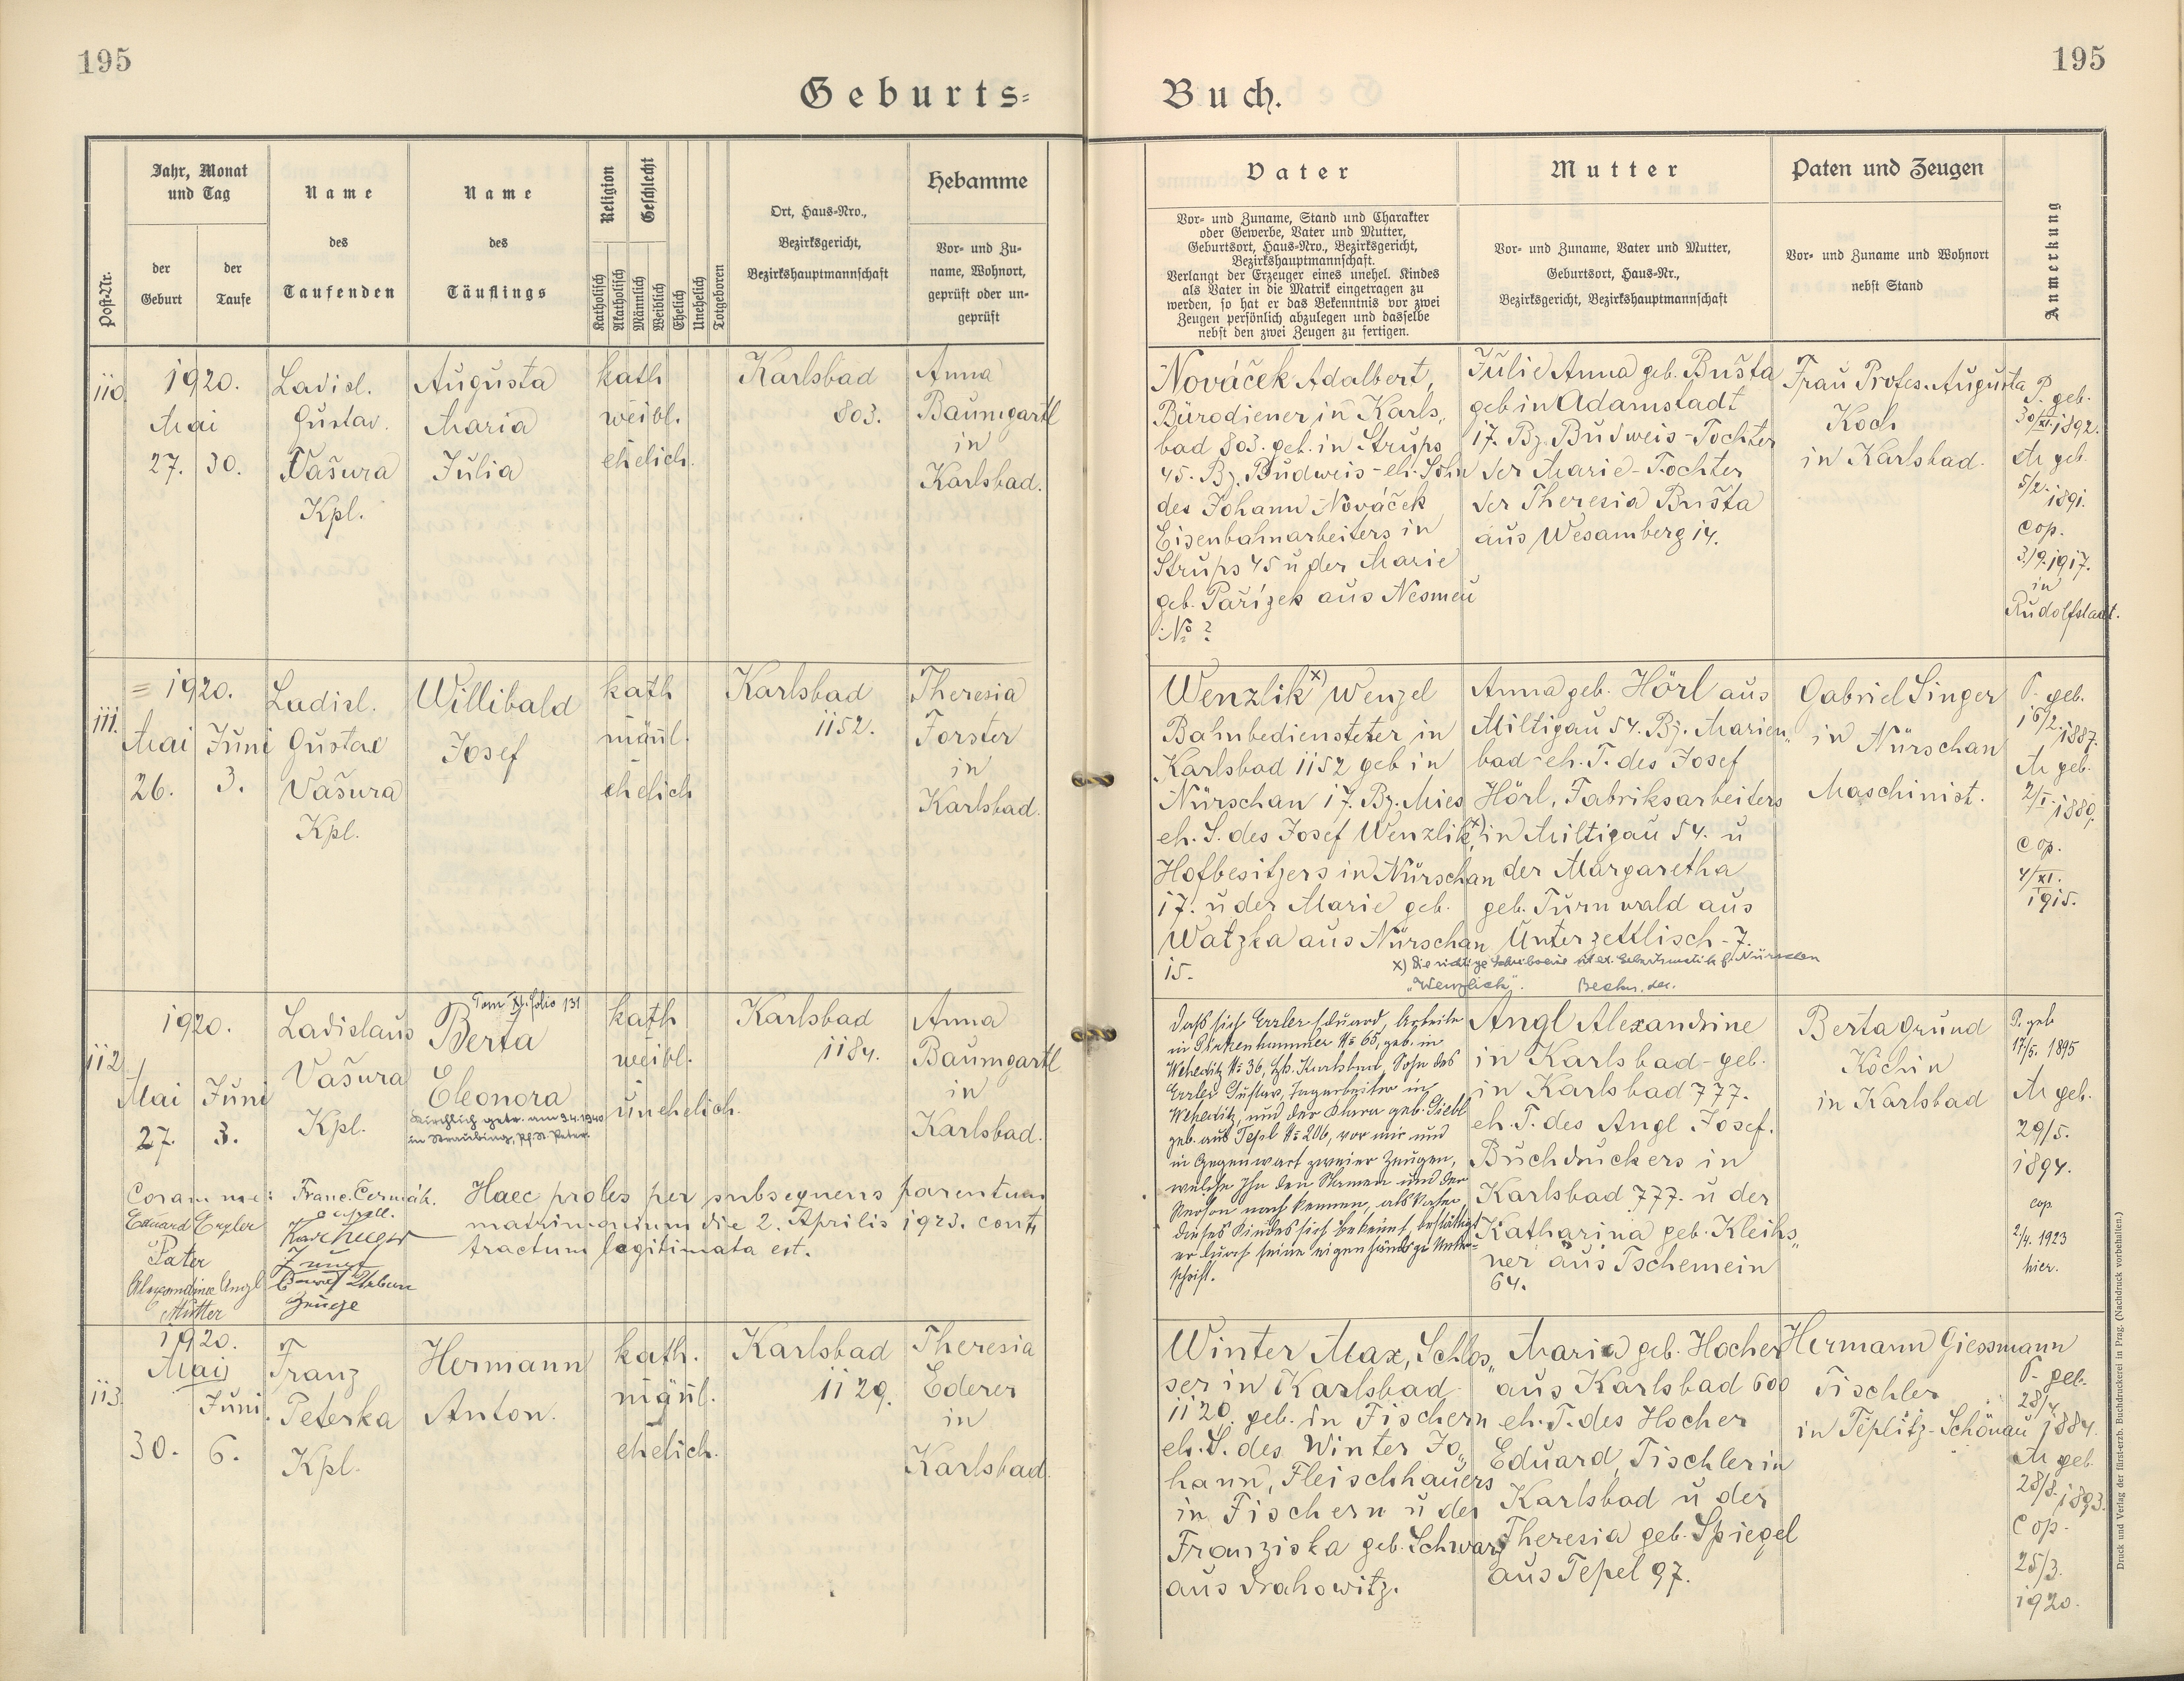 195
195
Geburts-
Buch.
Post-Nr.
Jahr, Monat
und Tag
der
Geburt
der
Taufe
Name
des
Taufenden
Name
des
Täuflings
Religion
Geschlecht
Katholisch
Akatholisch
Männlich
Weiblich
Ehelich
Unehelich
Totgeboren
Ort, Haus-Nro.,
Bezirksgericht,
Bezirkshauptmannschaft
Hebamme
Vor- und Zu-
name, Wohnort,
geprüft oder un-
geprüft
Vater
Vor- und Zuname, Stand und Charakter
oder Gewerbe, Vater und Mutter,
Geburtsort, Haus-Nro., Bezirksgericht,
Bezirkshauptmannschaft.
Verlangt der Erzeuger eines unehel. Kindes
als Vater in die Matrik eingetragen zu
werden, so hat er das Bekenntnis vor zwei
Zeugen persönlich abzulegen und dasselbe
nebst den zwei Zeugen zu fertigen.
Mutter
Vor- und Zuname, Vater und Mutter,
Geburtsort, Haus-Nr.,
Bezirksgericht, Bezirkshauptmannschaft
Paten und Zeugen
Vor- und Zuname und Wohnort
nebst Stand
Anmerkung
110.
1920.
Mai
27. 30.
Ladisl.
Gustav.
Vašura
Kpl.
Augusta
Maria
Julia
kath
weibl.
ehelich.
Karlsbad
803.
Anna
Baumgartl
in
Karlsbad.
Nováček Adalbert,
Bürodiener in Karls„
bad 803. geb. in Strups
45. Bz. Budweis - eh. Sohn
des Johann Nováček
Eisenbahnarbeiters in
Strups 45 u der Marie
geb. Pařízek aus Nesmeu
No ?
Julie Anna geb. Bušta
geb in Adamstadt
17. Bz. Budweis - Tochter
der Marie - Tochter
der Theresia Bušta
aus Wesamberg 14.
Frau Profes. Augusta
Koch
in Karlsbad.
P. geb.
30/XI. 1892.
M geb.
5/2. 1891.
cop.
3./9. 1917.
in
Rudolfstadt.
111.
1920.
Mai Juni
26. 3.
Ladisl.
Gustav
Vašura
Kpl.
Willibald
Josef
kath
mänl.
ehelich
Karlsbad
1152.
Theresia
Forster
in
Karlsbad.
Wenzlik x) Wenzel
Bahnbediensteter in
Karlsbad 1152 geb in
Nürschan 17. Bz. Mies
eh. S. des Josef Wenzlik x)
Hofbesitzers in Nürschan
17. u der Marie geb.
Watzka aus Nürschan
15.
Anna geb. Hörl aus
Miltigau 54. Bz. Marien„
bad - eh. T. des Josef
Hörl, Fabriksarbeiters
in Miltigau 54. u
der Margaretha
geb. Turnwald aus
Unterzettlisch - 7.
x) Die richtige Schreibweise ist lt. Geburtsmatrik f. Nürschan
„Wenzlick".
Gabriel Singer
in Nürschan
Maschinist.
P. geb.
16/2. 1887.
M geb.
2/I. 1889.
cop.
4/XI.
1915.
112.
1920.
Mai Juni
27. 3.
Ladislaus
Vašura
Kpl.
folio 131
Berta
Eleonora
Kirchlich getr. am 3.4.1940
in Straubing, Pf. St. Peter.
kath
weibl.
unehelich.
Karlsbad
1184.
Anna
Baumgartl
in
Karlsbad.
Coram me: Franc. Čermák.
Eduard Erzler
Vater
Alexandrine Angl
Mutter
Zeuge
Haec proles per subsequens parentum
matrimonium die 2. Aprilis 1923. cont„
tractum legitimata est.
Daß sich Erzler Eduard, Arbeiter
in Pirkenhammer No 65, geb. in
Weheditz No 36, Bz. Karlsbad, Sohn des
Erzler Gustav, Tagarbeiter in
Weheditz, und der Klara geb. Siebl
geb. aus Tepl No 206, vor mir und
in Gegenwart zweier Zeugen,
welche Ihn den Namen und der
Person nach kennen, als Vater
dieses Kindes sich bekennt, bestättigt
er durch seine eigenhändige Unter-
schrift.
Angl Alexandrine
in Karlsbad - geb.
in Karlsbad 777.
eh. T. des Angl Josef.
Buchdruckers in
Karlsbad 777. u der
Katharina geb. Kleihs„
ner aus Tschemein
64.
Berta Grund
Köchin
in Karlsbad
P. geb
17/5. 1895
M geb.
29/5.
1894.
cop
2/4. 1923
hier.
113.
1920.
Mai
Juni.
30. 6.
Franz
Peterka
Kpl.
Hermann
Anton.
kath.
mänl.
ehelich.
Karlsbad
1129.
Theresia
Ederer
in
Karlsbad.
Winter Max, Schlos„
ser in Karlsbad
1120. geb. in Fischern
eh. S. des Winter Jo„
hann, Fleischhauers
in Fischern u der
Franziska geb. Schwarz
aus Drahowitz.
Maria geb. Hocher
aus Karlsbad 600
eh. T. des Hocher
Eduard, Tischler in
Karlsbad u der
Theresia geb. Spiegel
aus Tepel 97.
Hermann Giessmann
Tischler
in Teplitz-Schönau
P. geb.
28/4.
1884.
M geb.
28/8. 1893.
cop.
25/3.
1920.
Druck und Verlag der fürst-erzb. Buchdruckerei in Prag. (Nachdruck vorbehalten.)